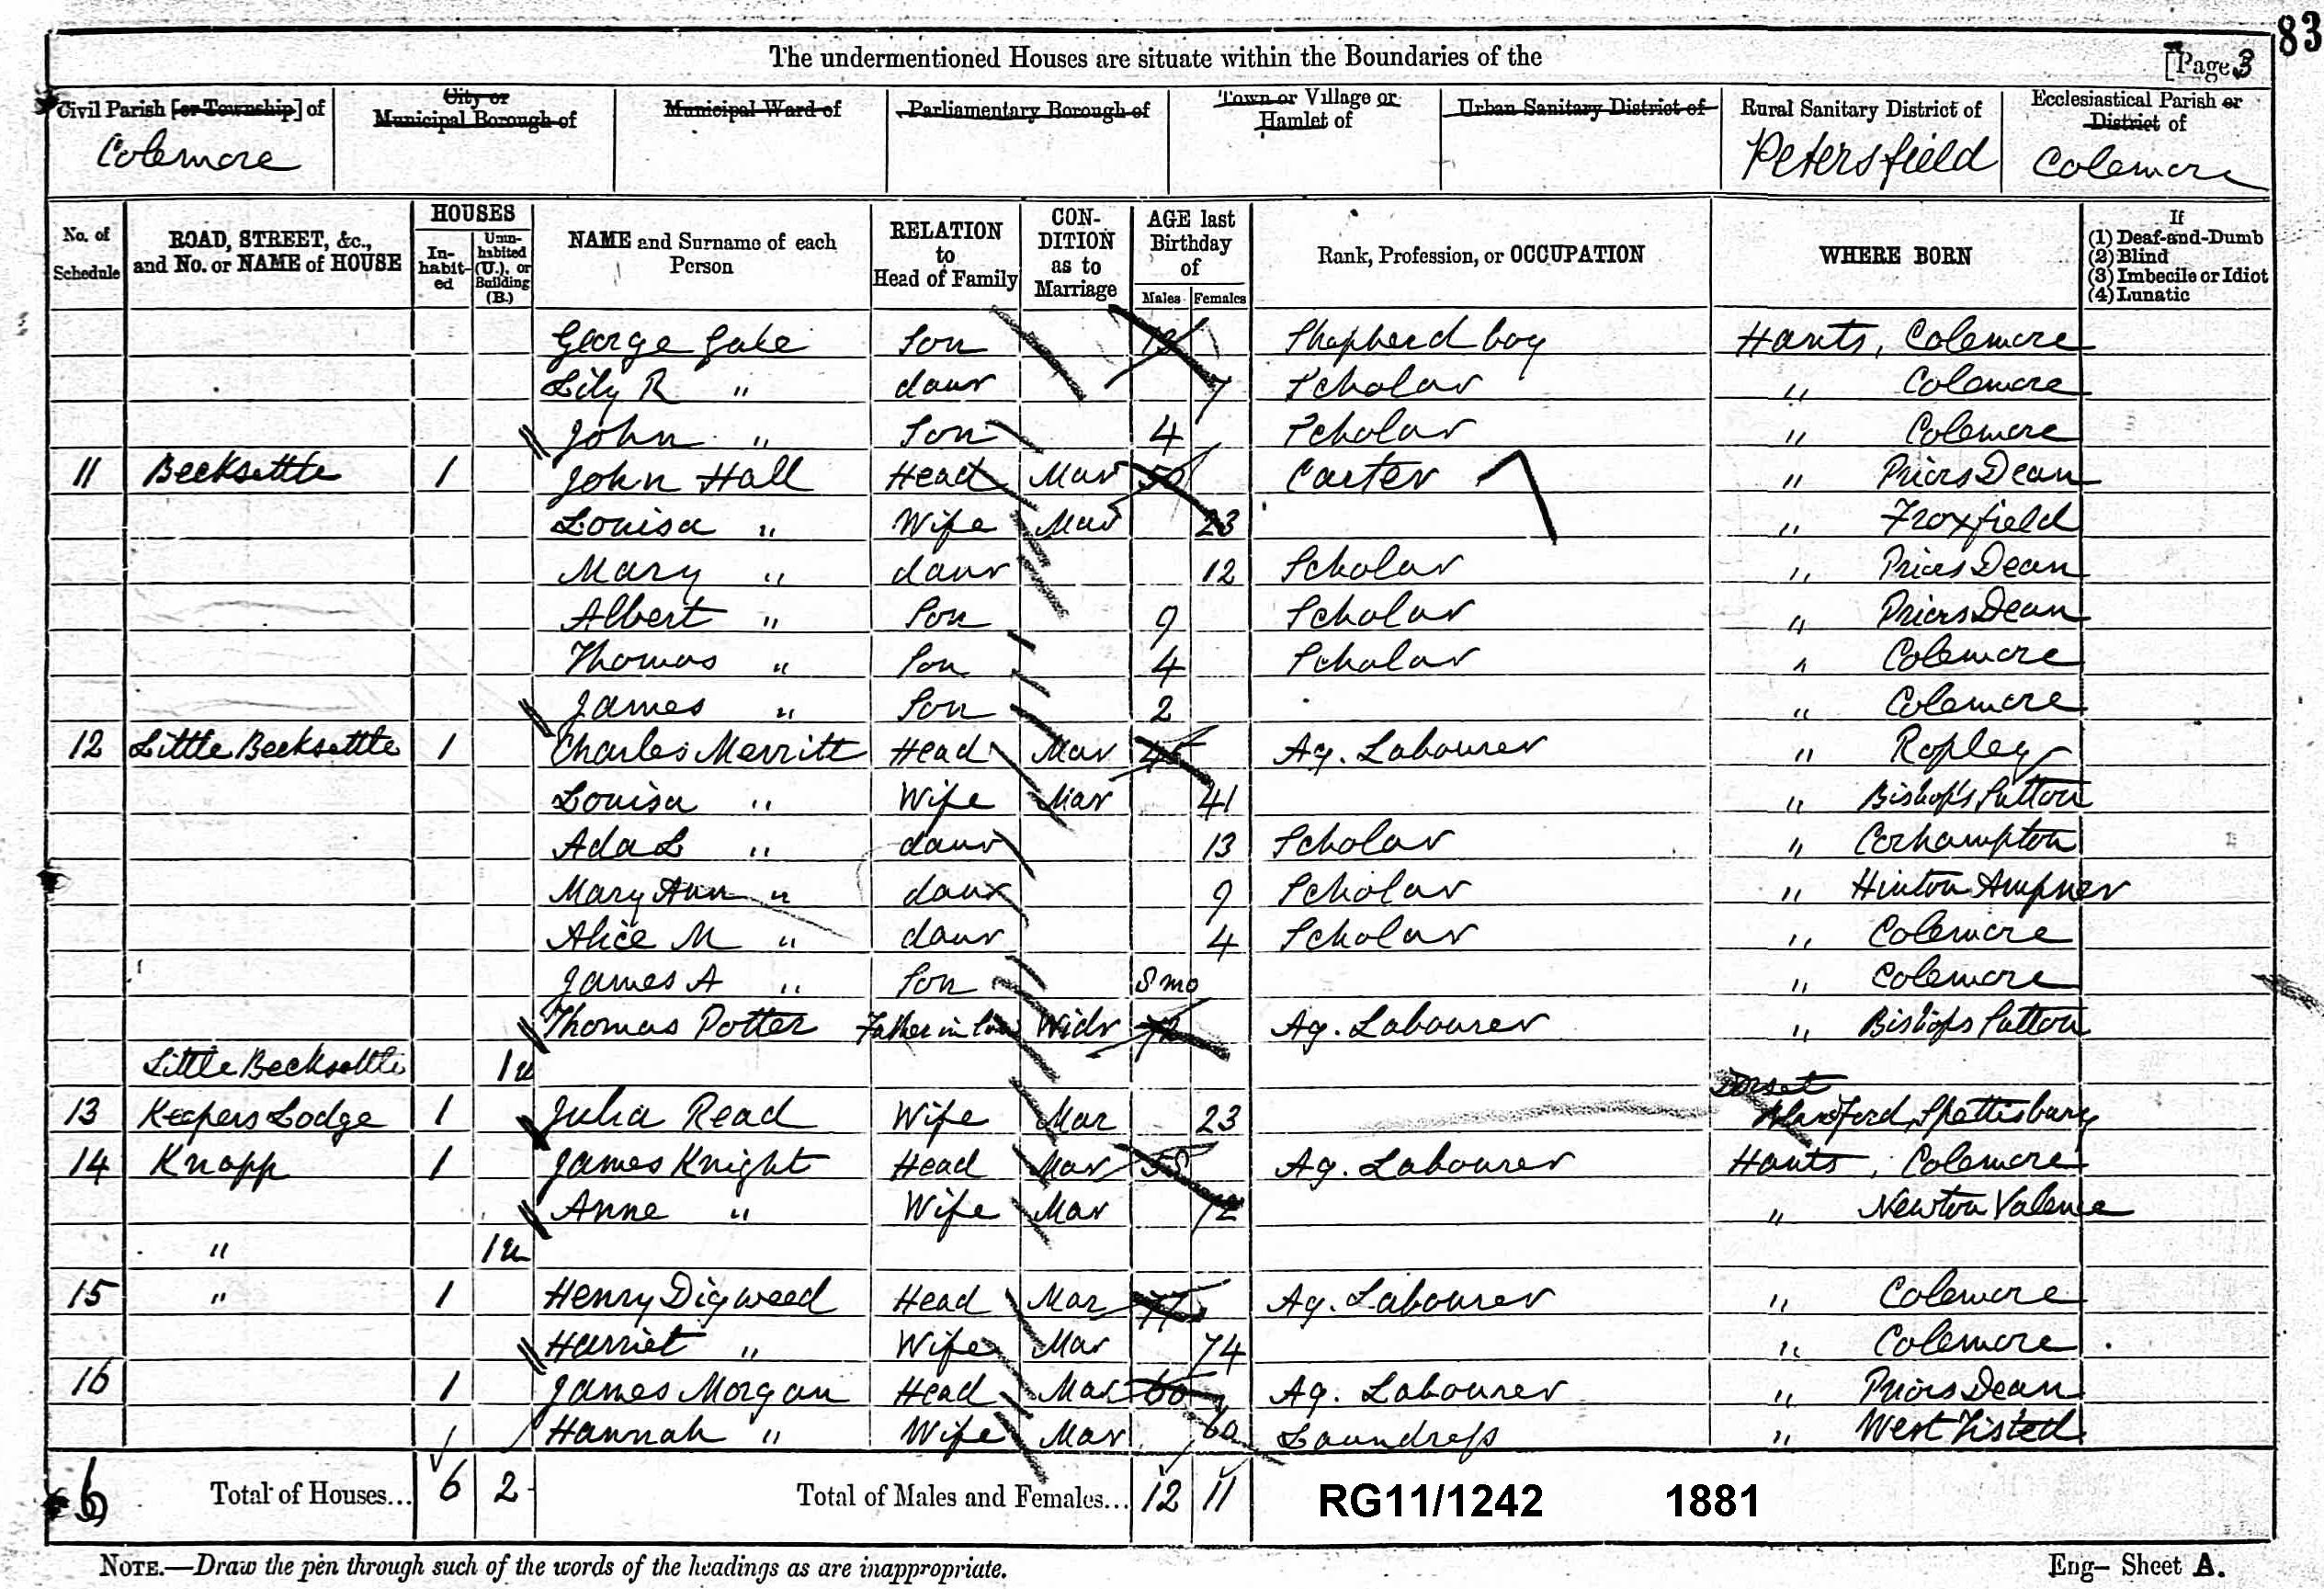 83
The undermentioned Houses are situate within the Boundaries of the
[Page 3
Civil Parish [or Township] of
City or Municipal Borough of
Municipal Ward of
Parliamentary Borough of
Town or Village or Hamlet of
Urban Sanitary District of
Rural Sanitary District of
Ecclesiastical Parish or District of
Colemore Petersfield Colemore
No. of Schedule
ROAD, STREET, &c., and No. or NAME of HOUSE
HOUSES
Inhabited
Uninhabited (U.), or Building (B.)
NAME and Surname of each Person
RELATION to Head of Family
CONDITION as to Marriage
AGE last Birthday of
Males Females
Rank, Profession, or OCCUPATION
WHERE BORN
If
(1) Deaf-and-Dumb
(2) Blind
(3) Imbecile or Idiot
(4) Lunatic
George Gale Son 13 Shepherd boy Hants, Colemore
Lily R " daur 7 Scholar " Colemore
John " Son 4 Scholar " Colemore
11 Becksettle 1 John Hall Head Mar 50 Carter " Priors Dean
Louisa " Wife Mar 23 " Froxfield
Mary " daur 12 Scholar " Priors Dean
Albert " Son 9 Scholar " Priors Dean
Thomas " Son 4 Scholar " Colemore
James " Son 2 " Colemore
12 Little Becksettle 1 Charles Merritt Head Mar 45 Ag. Labourer " Ropley
Louisa " Wife Mar 41 " Bishop's Sutton
Ada L " daur 13 Scholar " Corhampton
Mary Ann " daur 9 Scholar " Hinton Ampner
Alice M " daur 4 Scholar " Colemore
James A " Son 8 mo " Colemore
Thomas Potter Father in law Widr 72 Ag. Labourer " Bishops Sutton
Little Becksettle 1u
13 Keepers Lodge 1 Julia Read Wife Mar 23 Dorset Blandford, Spettisbury
14 Knapp 1 James Knight Head Mar 58 Ag. Labourer Hants, Colemore
Anne " Wife Mar 72 " Newton Valence
" 1u
15 " 1 Henry Digweed Head Mar 77 Ag. Labourer " Colemore
Harriet " Wife Mar 74 " Colemore
16 1 James Morgan Head Mar 60 Ag. Labourer " Priors Dean
Hannah " Wife Mar 60 Laundress " West Tisted
6 Total of Houses... 6 2 Total of Males and Females... 12 11 RG11/1242 1881
NOTE.—Draw the pen through such of the words of the headings as are inappropriate.
Eng— Sheet A.